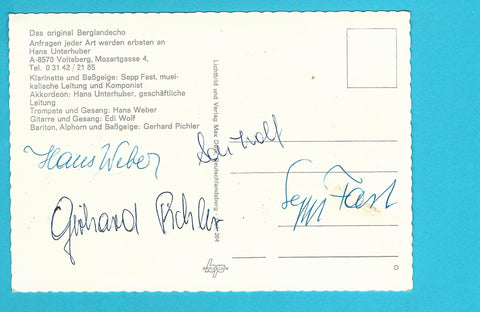 Das original Berglandecho
Anfragen jeder Art werden erbeten an
Hans Unterhuber
A-8570 Voitsberg, Mozartgasse 4,
Tel. 0 31 42 / 21 85
Klarinette und Baßgeige: Sepp Fast, musi-
kalische Leitung und Komponist
Akkordeon: Hans Unterhuber, geschäftliche
Leitung
Trompete und Gesang: Hans Weber
Gitarre und Gesang: Edi Wolf
Bariton, Alphorn und Baßgeige: Gerhard Pichler
Lichtbild und Verlag Max Deutschlandsberg
Hans Weber
Edi Wolf
Gerhard Pichler
Sepp Fast